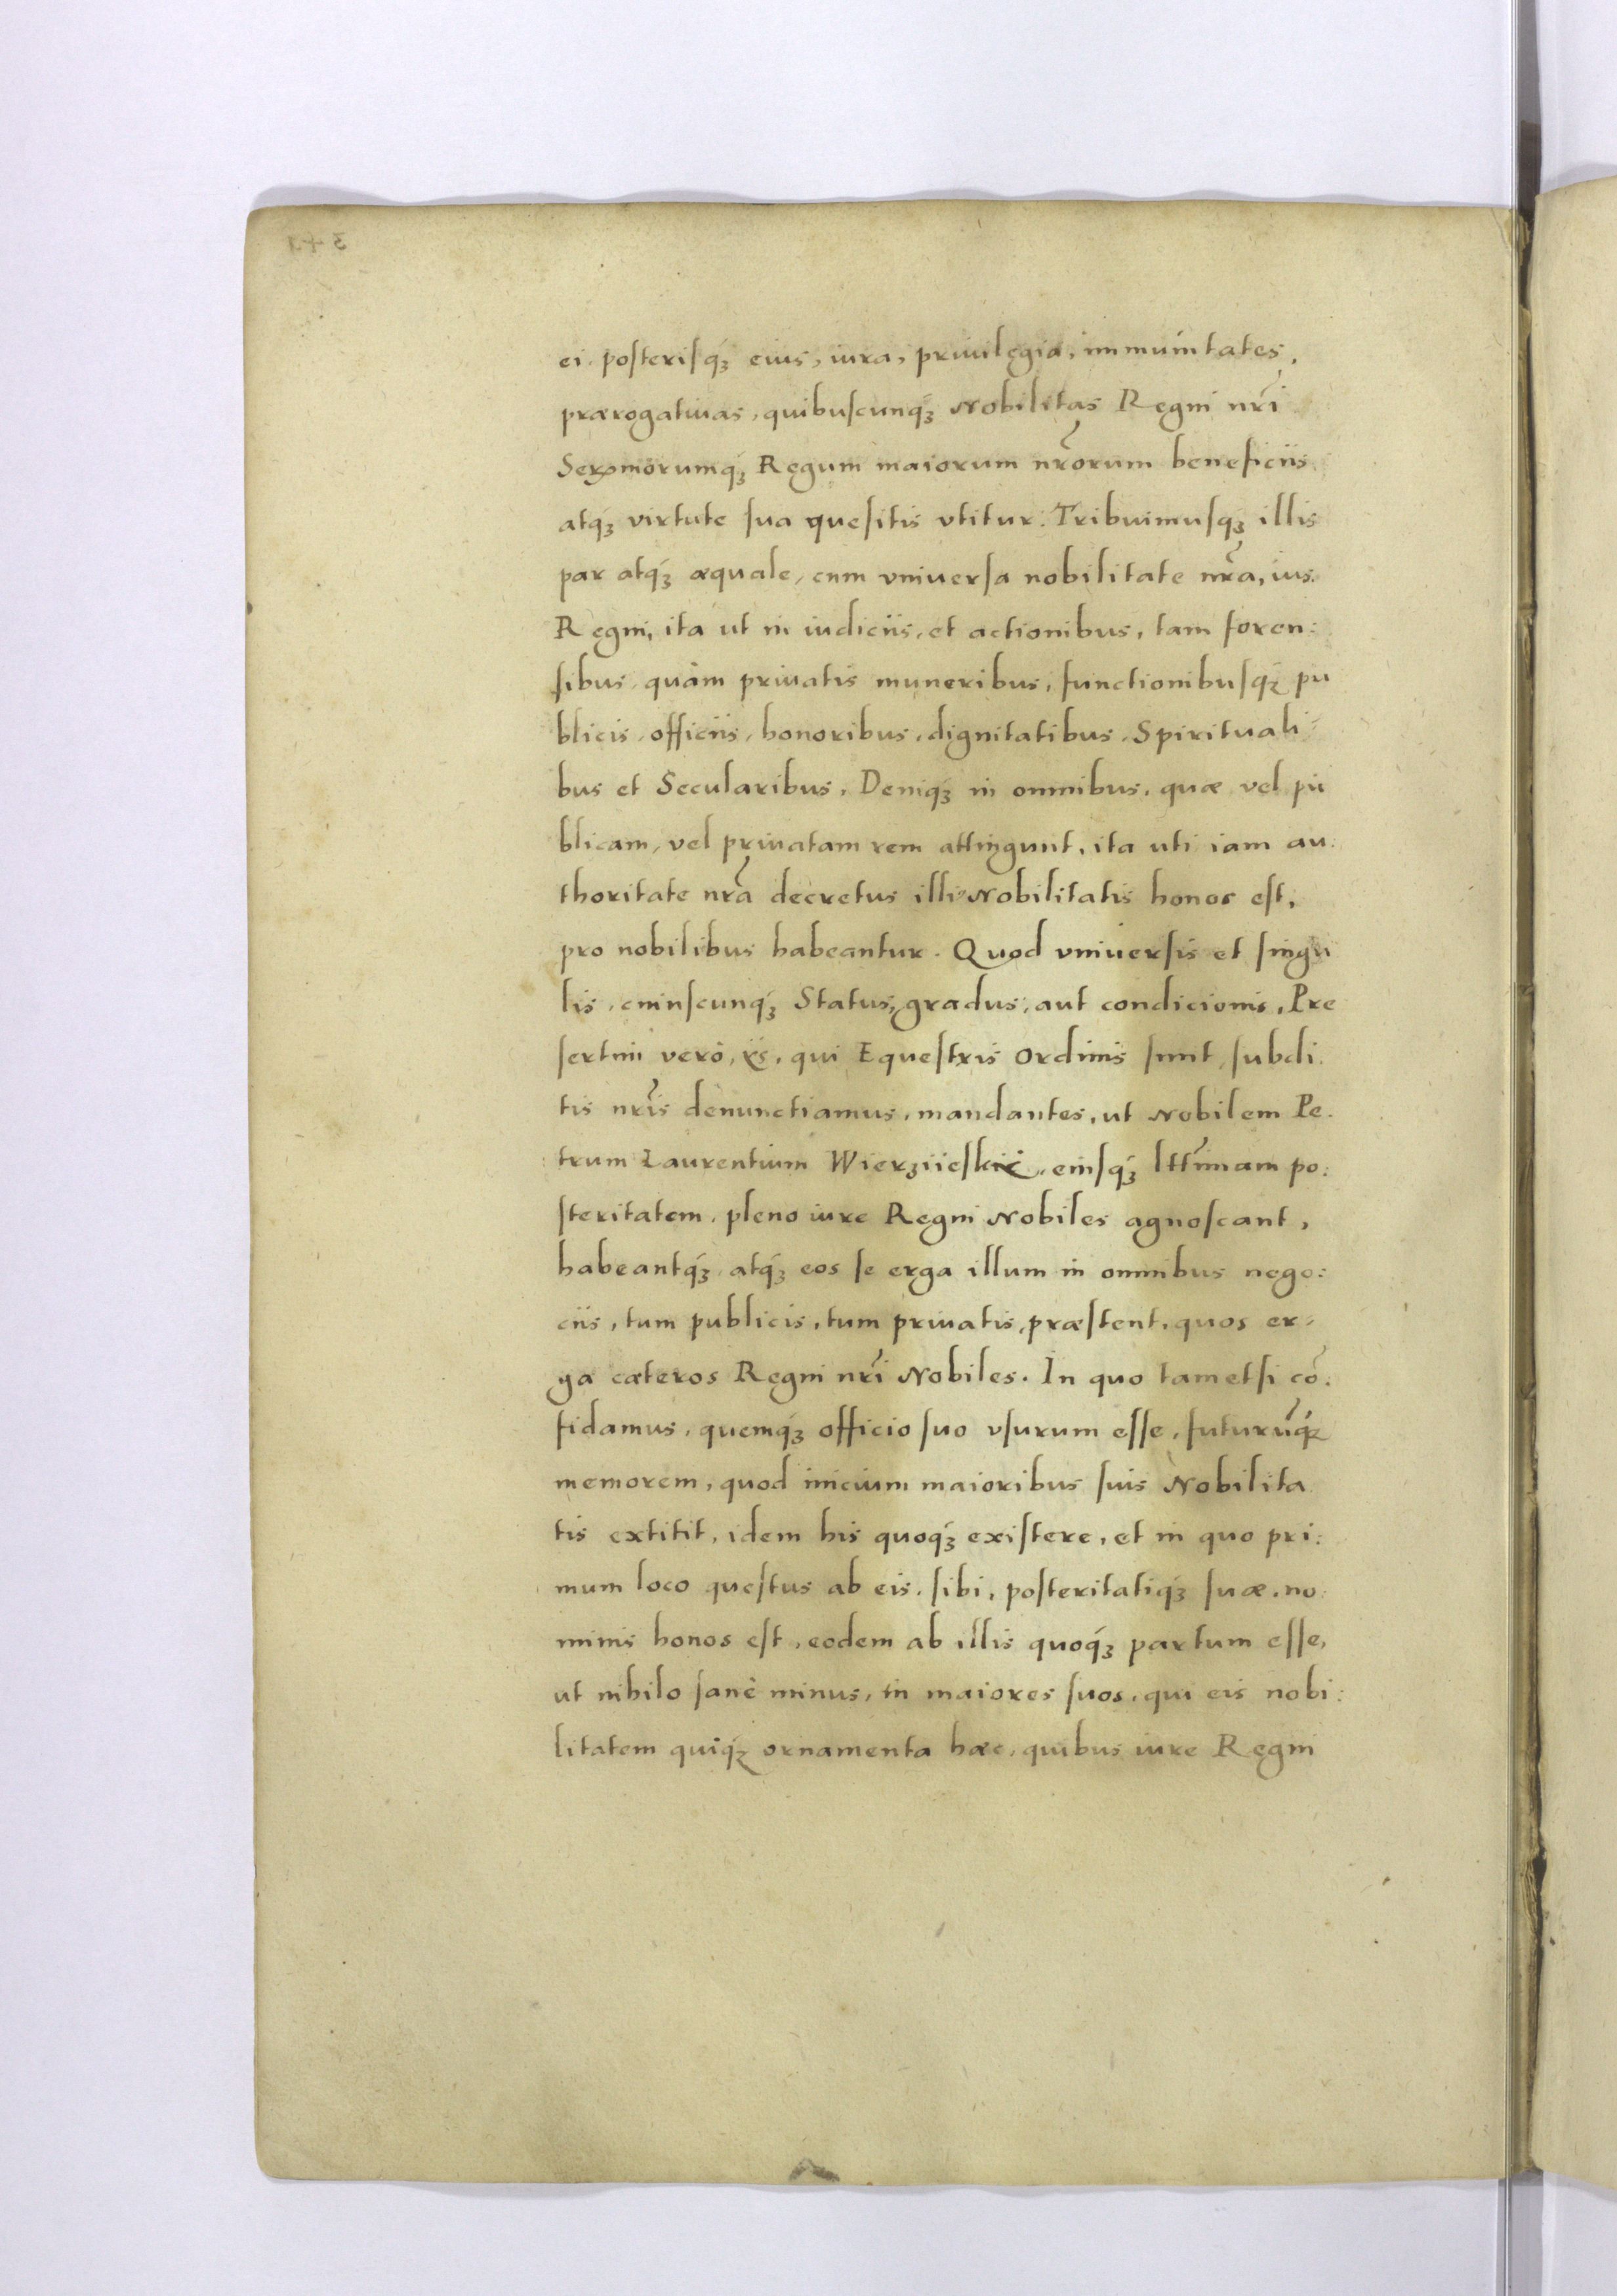 ei. posterisq́ꝫ eius, iura, priuilegia, immunitates,
prærogatiuas, quibuscunq́ꝫ Nobilitas Regni nr̃i
Serᵐorumq́ꝫ Regum maiorum nr̃orum beneficiis
atq́ꝫ virtute sua quesitis vtitur: Tribuimusq́ꝫ illis
par atq́ꝫ æquale, cum vniuersa nobilitate nr̃a, ius
Regni, ita ut in iudiciis, et actionibus, tam foren:
sibus, quàm priuatis muneribus, functionibusq́ꝫ pu
blicis, officiis, honoribus, dignitatibus, Spirituali-
bus et Secularibus, Deniq́ꝫ in omnibus, quæ vel pu
blicam, vel priuatam rem attingunt, ita uti iam au:
thoritate nr̃a decretus illi Nobilitatis honos est,
pro nobilibus habeantur. Quod vniuersis et singu
lis, cuiuscunq́ꝫ Status, gradus, aut condicionis, Pre
sertim verò, ijs, qui Equestris Ordinis sunt, subdi:
tis nr̃is denunctiamus, mandantes, ut Nobilem Pe:
trum Laurentium Wierziieskie, eiusq́ꝫ lttimam po:
steritatem, pleno iure Regni Nobiles agnoscant,
habeantq́ꝫ, atq́ꝫ eos se erga illum in omnibus nego:
ciis, tum publicis, tum priuatis, præstent, quos er-
ga cæteros Regni nr̃i Nobiles. In quo tametsi cõ:
fidamus, quemq́ꝫ officio suo vsurum esse, futurũq́ꝫ
memorem, quod inicium maioribus suis Nobilita
tis extitit, idem his quoq́ꝫ existere, et in quo pri:
mum loco questus ab eis, sibi, posteritatiq́ꝫ suæ, no
minis honos est, eodem ab illis quoq́ꝫ partum esse,
ut nihilo sanè minus, in maiores suos, qui eis nobi:
litatem quiq́ꝫ ornamenta hæc, quibus iure Regni